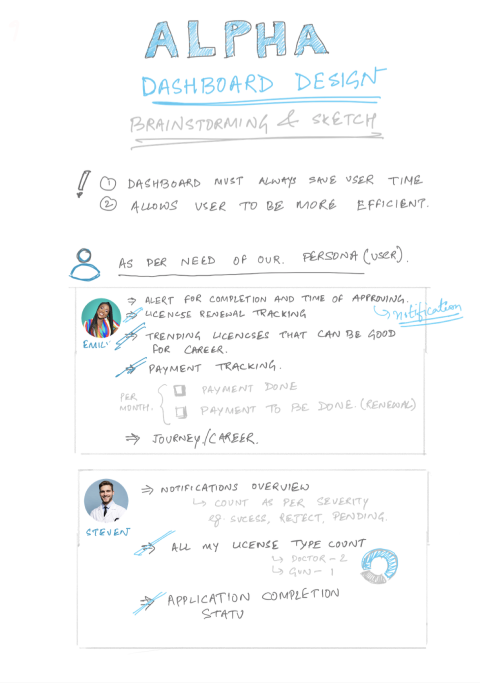 ALPHA
DASHBOARD DESIGN
BRAINSTORMING & SKETCH
① DASHBOARD MUST ALWAYS SAVE USER TIME
② ALLOWS USER TO BE MORE EFFICIENT.
AS PER NEED OF OUR. PERSONA (USER).
⇒ ALERT FOR COMPLETION AND TIME OF APPROVING.
↳ notification
⇒ LICENCSE RENEWAL TRACKING
EMILY
⇒ TRENDING LICENCSES THAT CAN BE GOOD
FOR CAREER.
⇒ PAYMENT TRACKING.
PER MONTH.
PAYMENT DONE
PAYMENT TO BE DONE. (RENEWAL)
⇒ JOURNEY/CAREER.
STEVEN
⇒ NOTIFICATIONS OVERVIEW
↳ COUNT AS PER SEVERITY
eg. SUCESS, REJECT, PENDING.
⇒ ALL MY LICENSE TYPE COUNT
↳ DOCTOR - 2
↳ GUN - 1
⇒ APPLICATION COMPLETION
STATU